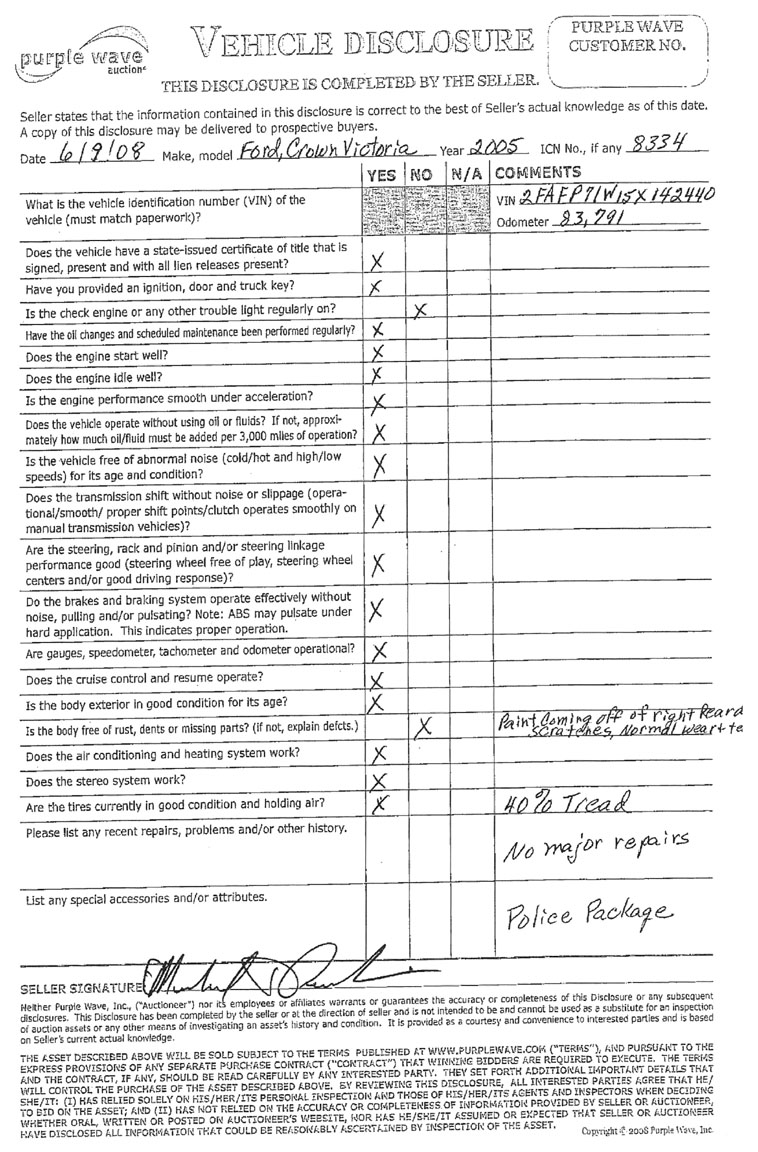 purple wave
auction®
VEHICLE DISCLOSURE
PURPLE WAVE
CUSTOMER NO.
THIS DISCLOSURE IS COMPLETED BY THE SELLER.
Seller states that the information contained in this disclosure is correct to the best of Seller's actual knowledge as of this date.
A copy of this disclosure may be delivered to prospective buyers.
Date 6/9/08 Make, model Ford, Crown Victoria Year 2005 ICN No., if any 8334
YES NO N/A COMMENTS
What is the vehicle identification number (VIN) of the
vehicle (must match paperwork)?
VIN 2FAFP71W15X142440
Odometer 83,791
Does the vehicle have a state-issued certificate of title that is
signed, present and with all lien releases present? X
Have you provided an ignition, door and truck key? X
Is the check engine or any other trouble light regularly on? X
Have the oil changes and scheduled maintenance been performed regularly? X
Does the engine start well? X
Does the engine idle well? X
Is the engine performance smooth under acceleration? X
Does the vehicle operate without using oil or fluids? If not, approxi-
mately how much oil/fluid must be added per 3,000 miles of operation? X
Is the vehicle free of abnormal noise (cold/hot and high/low
speeds) for its age and condition? X
Does the transmission shift without noise or slippage (opera-
tional/smooth/ proper shift points/clutch operates smoothly on
manual transmission vehicles)? X
Are the steering, rack and pinion and/or steering linkage
performance good (steering wheel free of play, steering wheel
centers and/or good driving response)? X
Do the brakes and braking system operate effectively without
noise, pulling and/or pulsating? Note: ABS may pulsate under
hard application. This indicates proper operation. X
Are gauges, speedometer, tachometer and odometer operational? X
Does the cruise control and resume operate? X
Is the body exterior in good condition for its age? X
Is the body free of rust, dents or missing parts? (if not, explain defcts.) X
Paint coming off of right Reard
Scratches, Normal wear + te
Does the air conditioning and heating system work? X
Does the stereo system work? X
Are the tires currently in good condition and holding air? X 40% Tread
Please list any recent repairs, problems and/or other history.
No major repairs
List any special accessories and/or attributes.
Police Package
SELLER SIGNATURE
Neither Purple Wave, Inc., ("Auctioneer") nor its employees or affiliates warrants or guarantees the accuracy or completeness of this Disclosure or any subsequent
disclosures. This Disclosure has been completed by the seller or at the direction of seller and is not intended to be and cannot be used as a substitute for an inspection
of auction assets or any other means of investigating an asset's history and condition. It is provided as a courtesy and convenience to interested parties and is based
on Seller's current actual knowledge.
THE ASSET DESCRIBED ABOVE WILL BE SOLD SUBJECT TO THE TERMS PUBLISHED AT WWW.PURPLEWAVE.COM ("TERMS"), AND PURSUANT TO THE
EXPRESS PROVISIONS OF ANY SEPARATE PURCHASE CONTRACT ("CONTRACT") THAT WINNING BIDDERS ARE REQUIRED TO EXECUTE. THE TERMS
AND THE CONTRACT, IF ANY, SHOULD BE READ CAREFULLY BY ANY INTERESTED PARTY. THEY SET FORTH ADDITIONAL IMPORTANT DETAILS THAT
WILL CONTROL THE PURCHASE OF THE ASSET DESCRIBED ABOVE. BY REVIEWING THIS DISCLOSURE, ALL INTERESTED PARTIES AGREE THAT HE/
SHE/IT: (I) HAS RELIED SOLELY ON HIS/HER/ITS PERSONAL INSPECTION AND THOSE OF HIS/HER/ITS AGENTS AND INSPECTORS WHEN DECIDING
TO BID ON THE ASSET; AND (II) HAS NOT RELIED ON THE ACCURACY OR COMPLETENESS OF INFORMATION PROVIDED BY SELLER OR AUCTIONEER,
WHETHER ORAL, WRITTEN OR POSTED ON AUCTIONEER'S WEBSITE, NOR HAS HE/SHE/IT ASSUMED OR EXPECTED THAT SELLER OR AUCTIONEER
HAVE DISCLOSED ALL INFORMATION THAT COULD BE REASONABLY ASCERTAINED BY INSPECTION OF THE ASSET.
Copyright © 2008 Purple Wave, Inc.